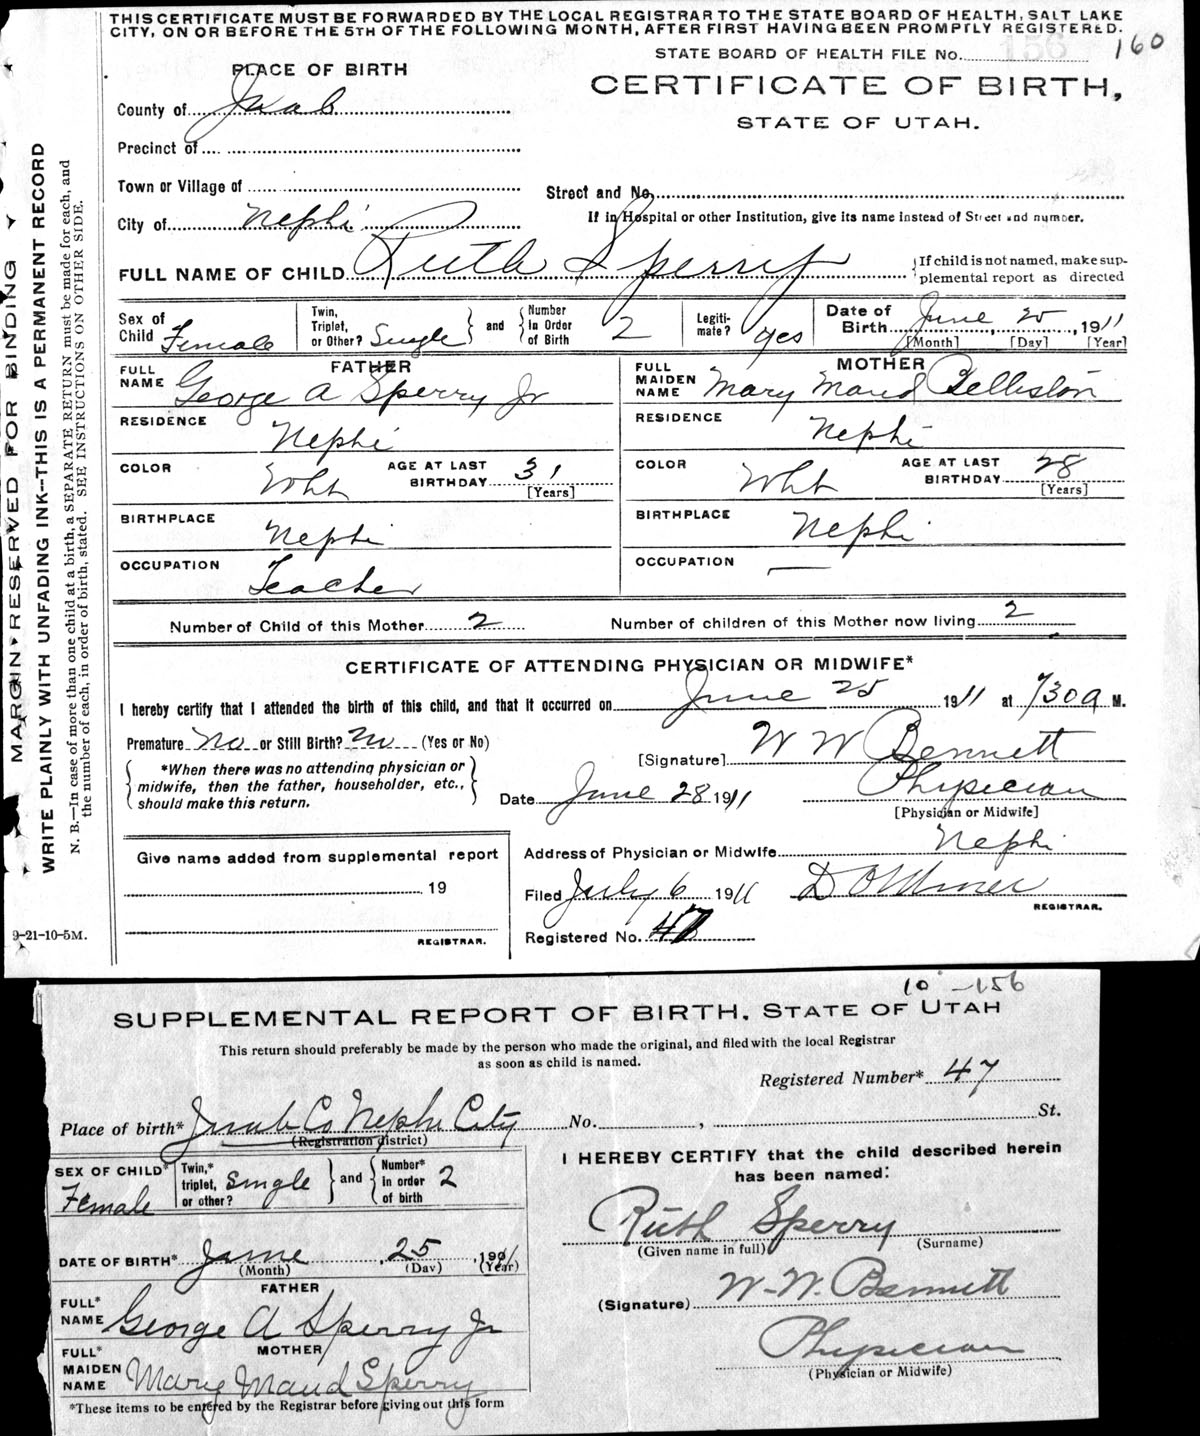 THIS CERTIFICATE MUST BE FORWARDED BY THE LOCAL REGISTRAR TO THE STATE BOARD OF HEALTH, SALT LAKE
CITY, ON OR BEFORE THE 5TH OF THE FOLLOWING MONTH, AFTER FIRST HAVING BEEN PROMPTLY REGISTERED.
STATE BOARD OF HEALTH FILE No. 156 160
PLACE OF BIRTH
CERTIFICATE OF BIRTH,
STATE OF UTAH.
County of Juab
Precinct of
Town or Village of
Street and No.
City of Nephi
If in Hospital or other Institution, give its name instead of Street and number.
FULL NAME OF CHILD Ruth Sperry
If child is not named, make sup-
plemental report as directed
Sex of Child Female
Twin, Triplet, or Other? Single
and
Number In Order of Birth 2
Legiti-mate? yes
Date of Birth June 25, 1911
[Month] [Day] [Year]
FATHER
FULL NAME George A Sperry Jr
MOTHER
FULL MAIDEN NAME Mary Maud Belliston
RESIDENCE Nephi
RESIDENCE Nephi
COLOR Wht AGE AT LAST BIRTHDAY 31 [Years]
COLOR Wht AGE AT LAST BIRTHDAY 28 [Years]
BIRTHPLACE Nephi
BIRTHPLACE Nephi
OCCUPATION Teacher
OCCUPATION —
Number of Child of this Mother 2 Number of children of this Mother now living 2
CERTIFICATE OF ATTENDING PHYSICIAN OR MIDWIFE*
I hereby certify that I attended the birth of this child, and that it occurred on June 25 1911 at 730 a M.
Premature No or Still Birth? No (Yes or No)
[Signature] W W Bennett
*When there was no attending physician or
midwife, then the father, householder, etc.,
should make this return.
Date June 28 1911 Physician
[Physician or Midwife]
Give name added from supplemental report
19
REGISTRAR.
Address of Physician or Midwife Nephi
Filed July 6 1911
REGISTRAR.
Registered No. 47
9-21-10-5M.
MARGIN RESERVED FOR BINDING
WRITE PLAINLY WITH UNFADING INK--THIS IS A PERMANENT RECORD
N. B.—In case of more than one child at a birth, a SEPARATE RETURN must be made for each, and
the number of each, in order of birth, stated. SEE INSTRUCTIONS ON OTHER SIDE.
10 -156
SUPPLEMENTAL REPORT OF BIRTH, STATE OF UTAH
This return should preferably be made by the person who made the original, and filed with the local Registrar
as soon as child is named.
Registered Number* 47
Place of birth* Juab Co Nephi City No. , St.
(Registration district)
SEX OF CHILD* Female
Twin,* triplet, or other? Single
and
Number* in order of birth 2
DATE OF BIRTH* June, 25, 1911
(Month) (Day) (Year)
FATHER
FULL* NAME George A Sperry Jr
MOTHER
FULL* MAIDEN NAME Mary Maud Sperry
*These items to be entered by the Registrar before giving out this form
I HEREBY CERTIFY that the child described herein
has been named:
Ruth Sperry
(Given name in full) (Surname)
(Signature) W. W. Bennett
Physician
(Physician or Midwife)